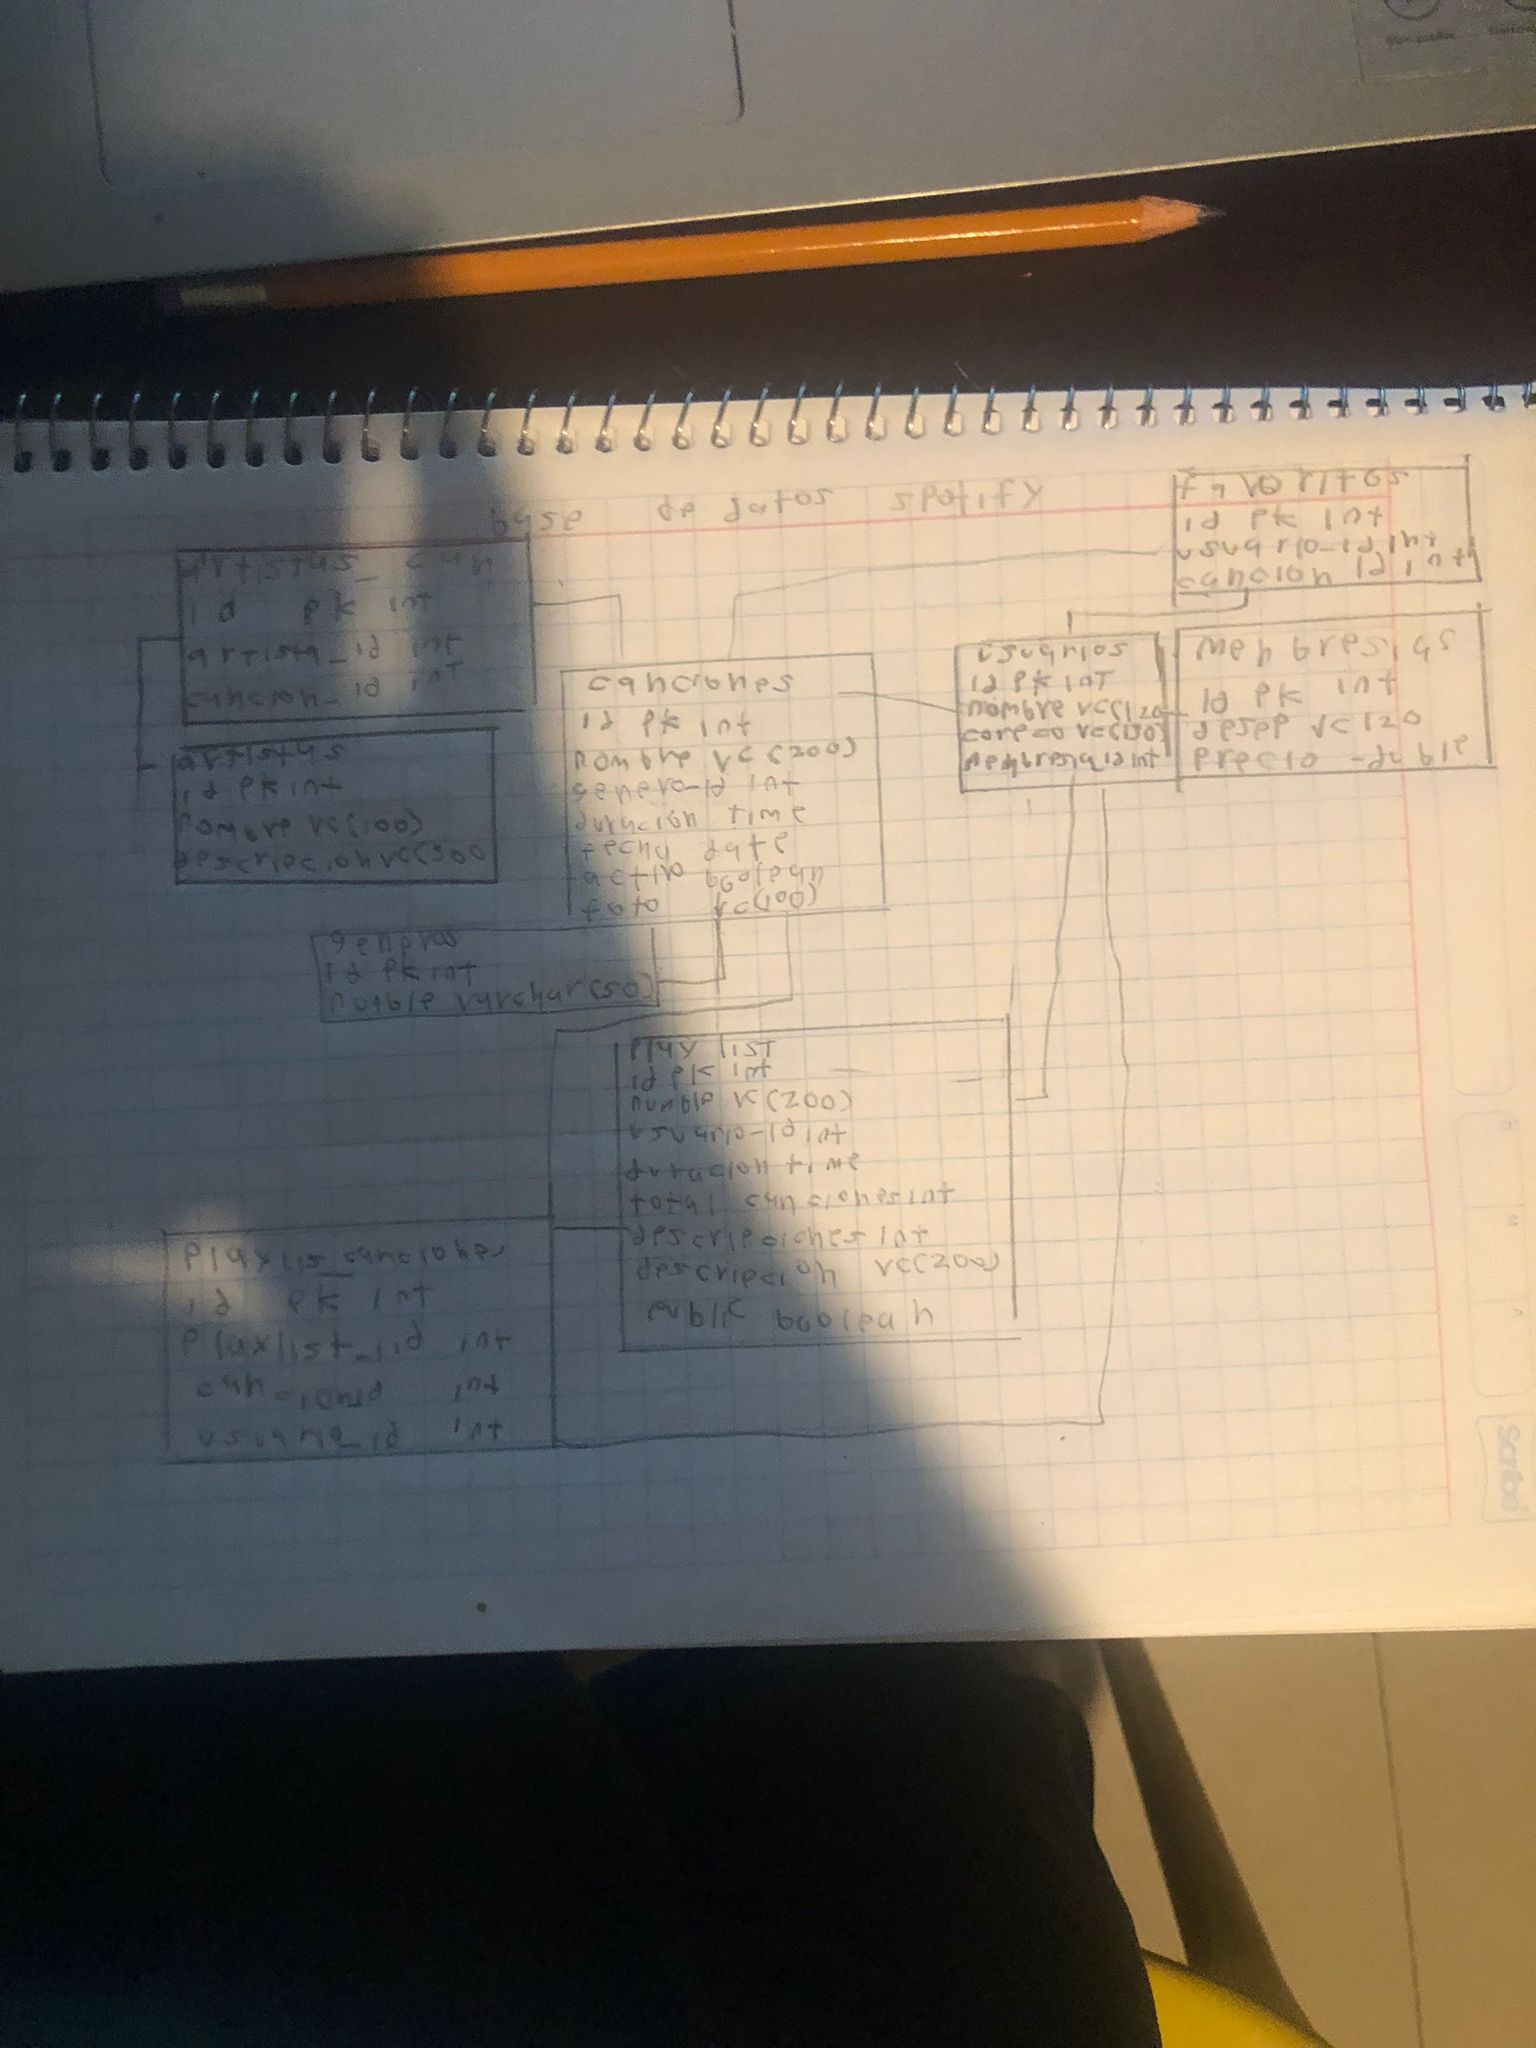 base de datos spotify
favoritos
id pk int
usuario_id int
cancion id int
artistas_can
id pk int
artista_id int
cancion_id int
artistas
id pk int
nombre vc(100)
descripcion vc(300
canciones
id pk int
nombre vc(200)
genero_id int
duracion time
fecha date
activo boolean
foto vc(100)
usuarios
id pk int
nombre vc(120
correo vc(150)
membresia id int
membresias
id pk int
desep vc120
precio -duble
generos
id pk int
nombre varchar(50)
play list
id pk int
nombre vc(200)
usuario-id int
duracion time
total canciones int
descripciones int
descripcion vc(200)
public boolean
playlis_canciones
id pk int
playlist_id int
cancionid int
usuario_id int
Scribe